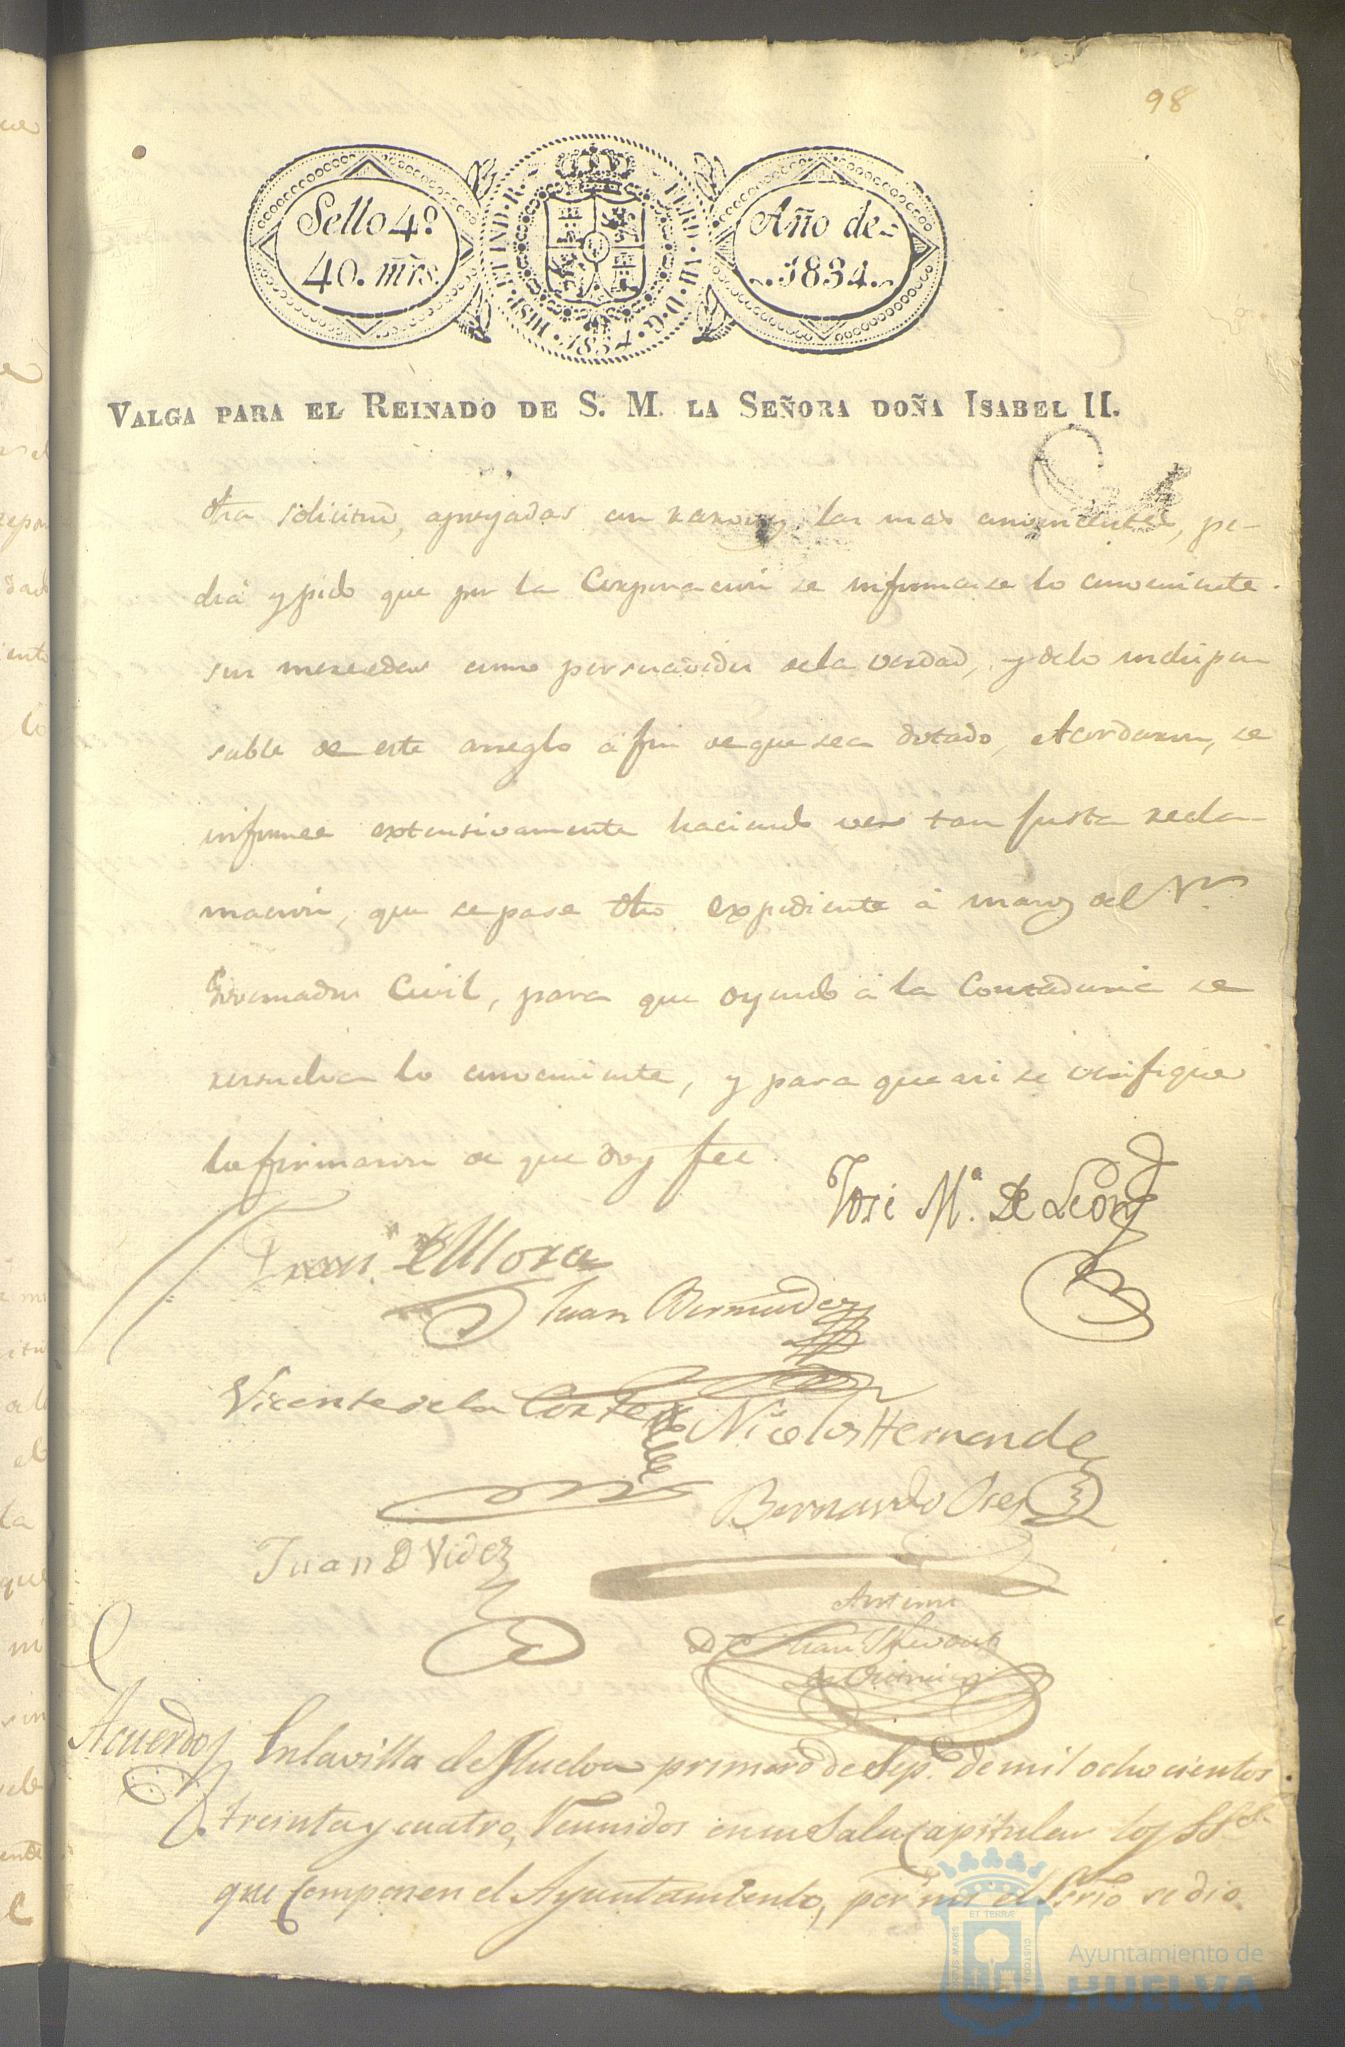 98
Sello 4º
40. mrs.
HISP. ET IND. R.
FERD. VII. D. G.
1834.
Año de
1834.
VALGA PARA EL REINADO DE S. M. LA SEÑORA DOÑA ISABEL II.
dha solicitud, apoyadas en razones las mas convincentes, pe-
dia y pido que por la Corporacion se informase lo conveniente.
sus mercedes como persuadidos de la verdad, y de lo indispen
sable de este arreglo á fin de que sea dotado, Acordaron, se
informe extensivamente haciendo ver tan justa recla-
macion, que se pase dho expediente á manos del
Governador Civil, para que oyendo á la Contaduria se
resuelva lo conveniente, y para que asi se verifique
lo firmaron de que doy fee.
José Mª. De Leon
de Mora
Juan Bermudez
Vicente de la Corte
Nicolos Hernande
Bernardo
Juan D Videz
Antemi
Juan
Acuerdo
En la villa de Huelva primero de Sep.e de mil ochocientos
treinta y cuatro, Reunidos en su Sala Capitular los SSes
que Componen el Ayuntamiento, por mi el Srio se dio
MARIS
ET TERRÆ
CUSTODIA
Ayuntamiento de
HUELVA